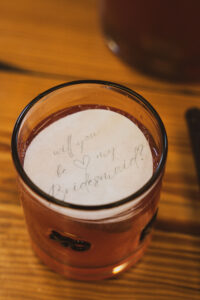 will you
be ♡ my
Bridesmaid?